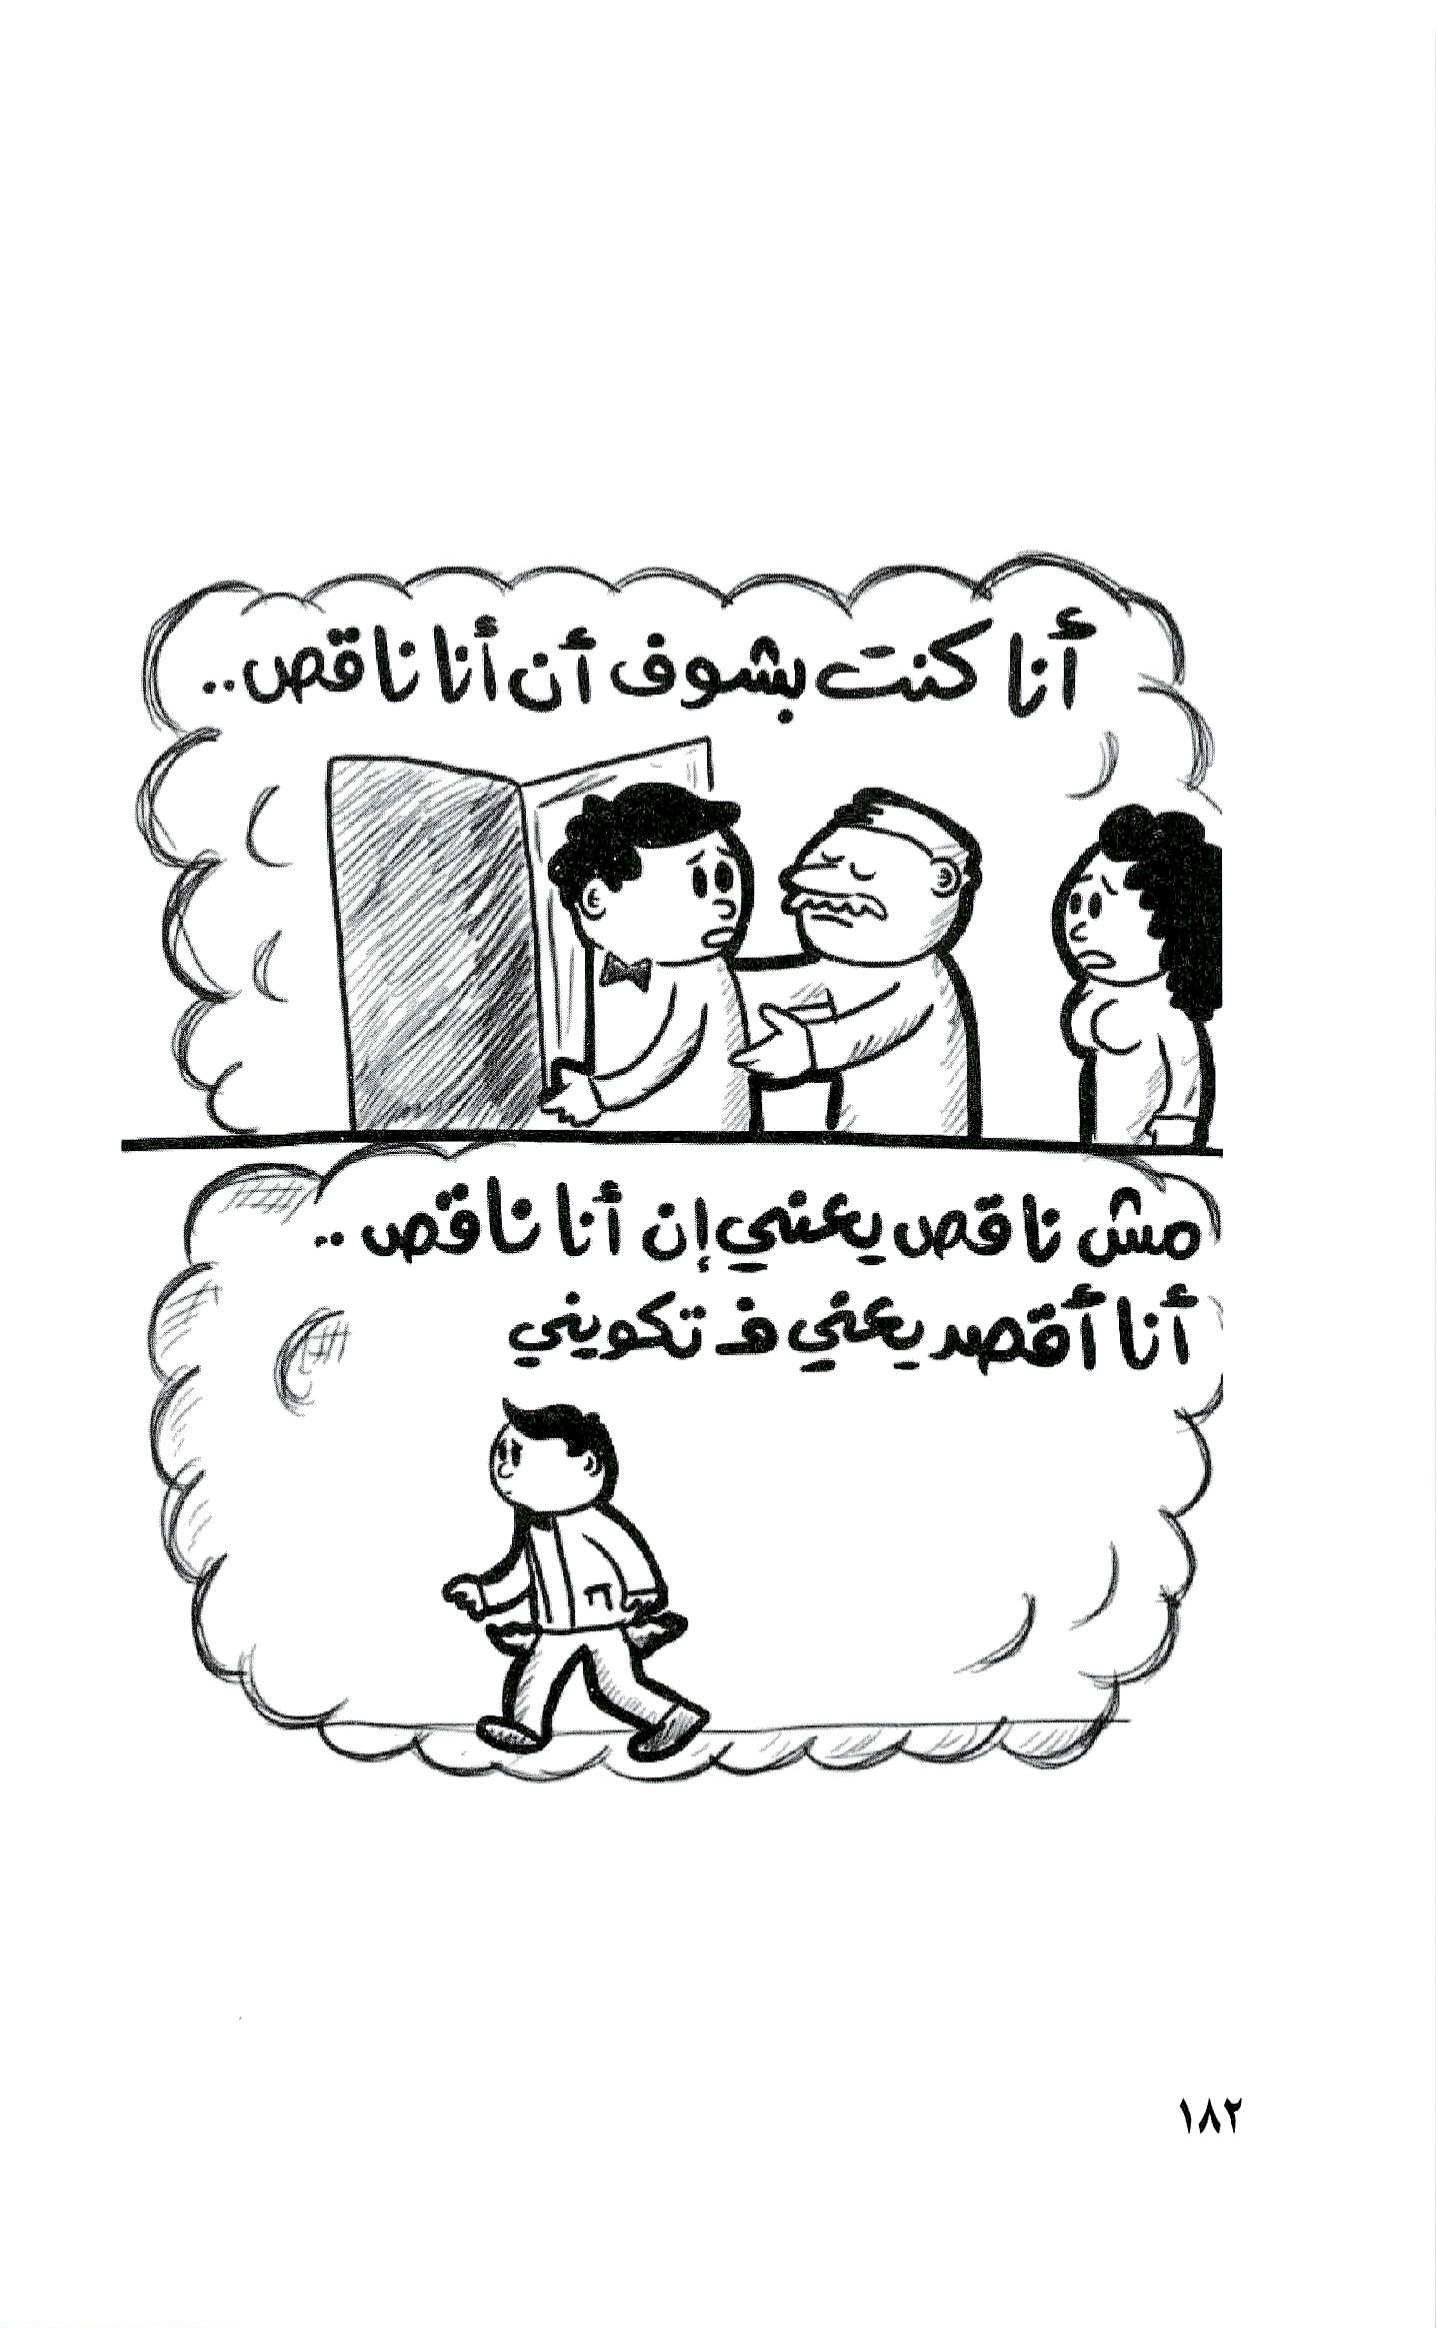 أنا كنت بشوف أن أنا ناقص..
مش ناقص يعني إن أنا ناقص..
أنا أقصد يعني ف تكويني
١٨٢